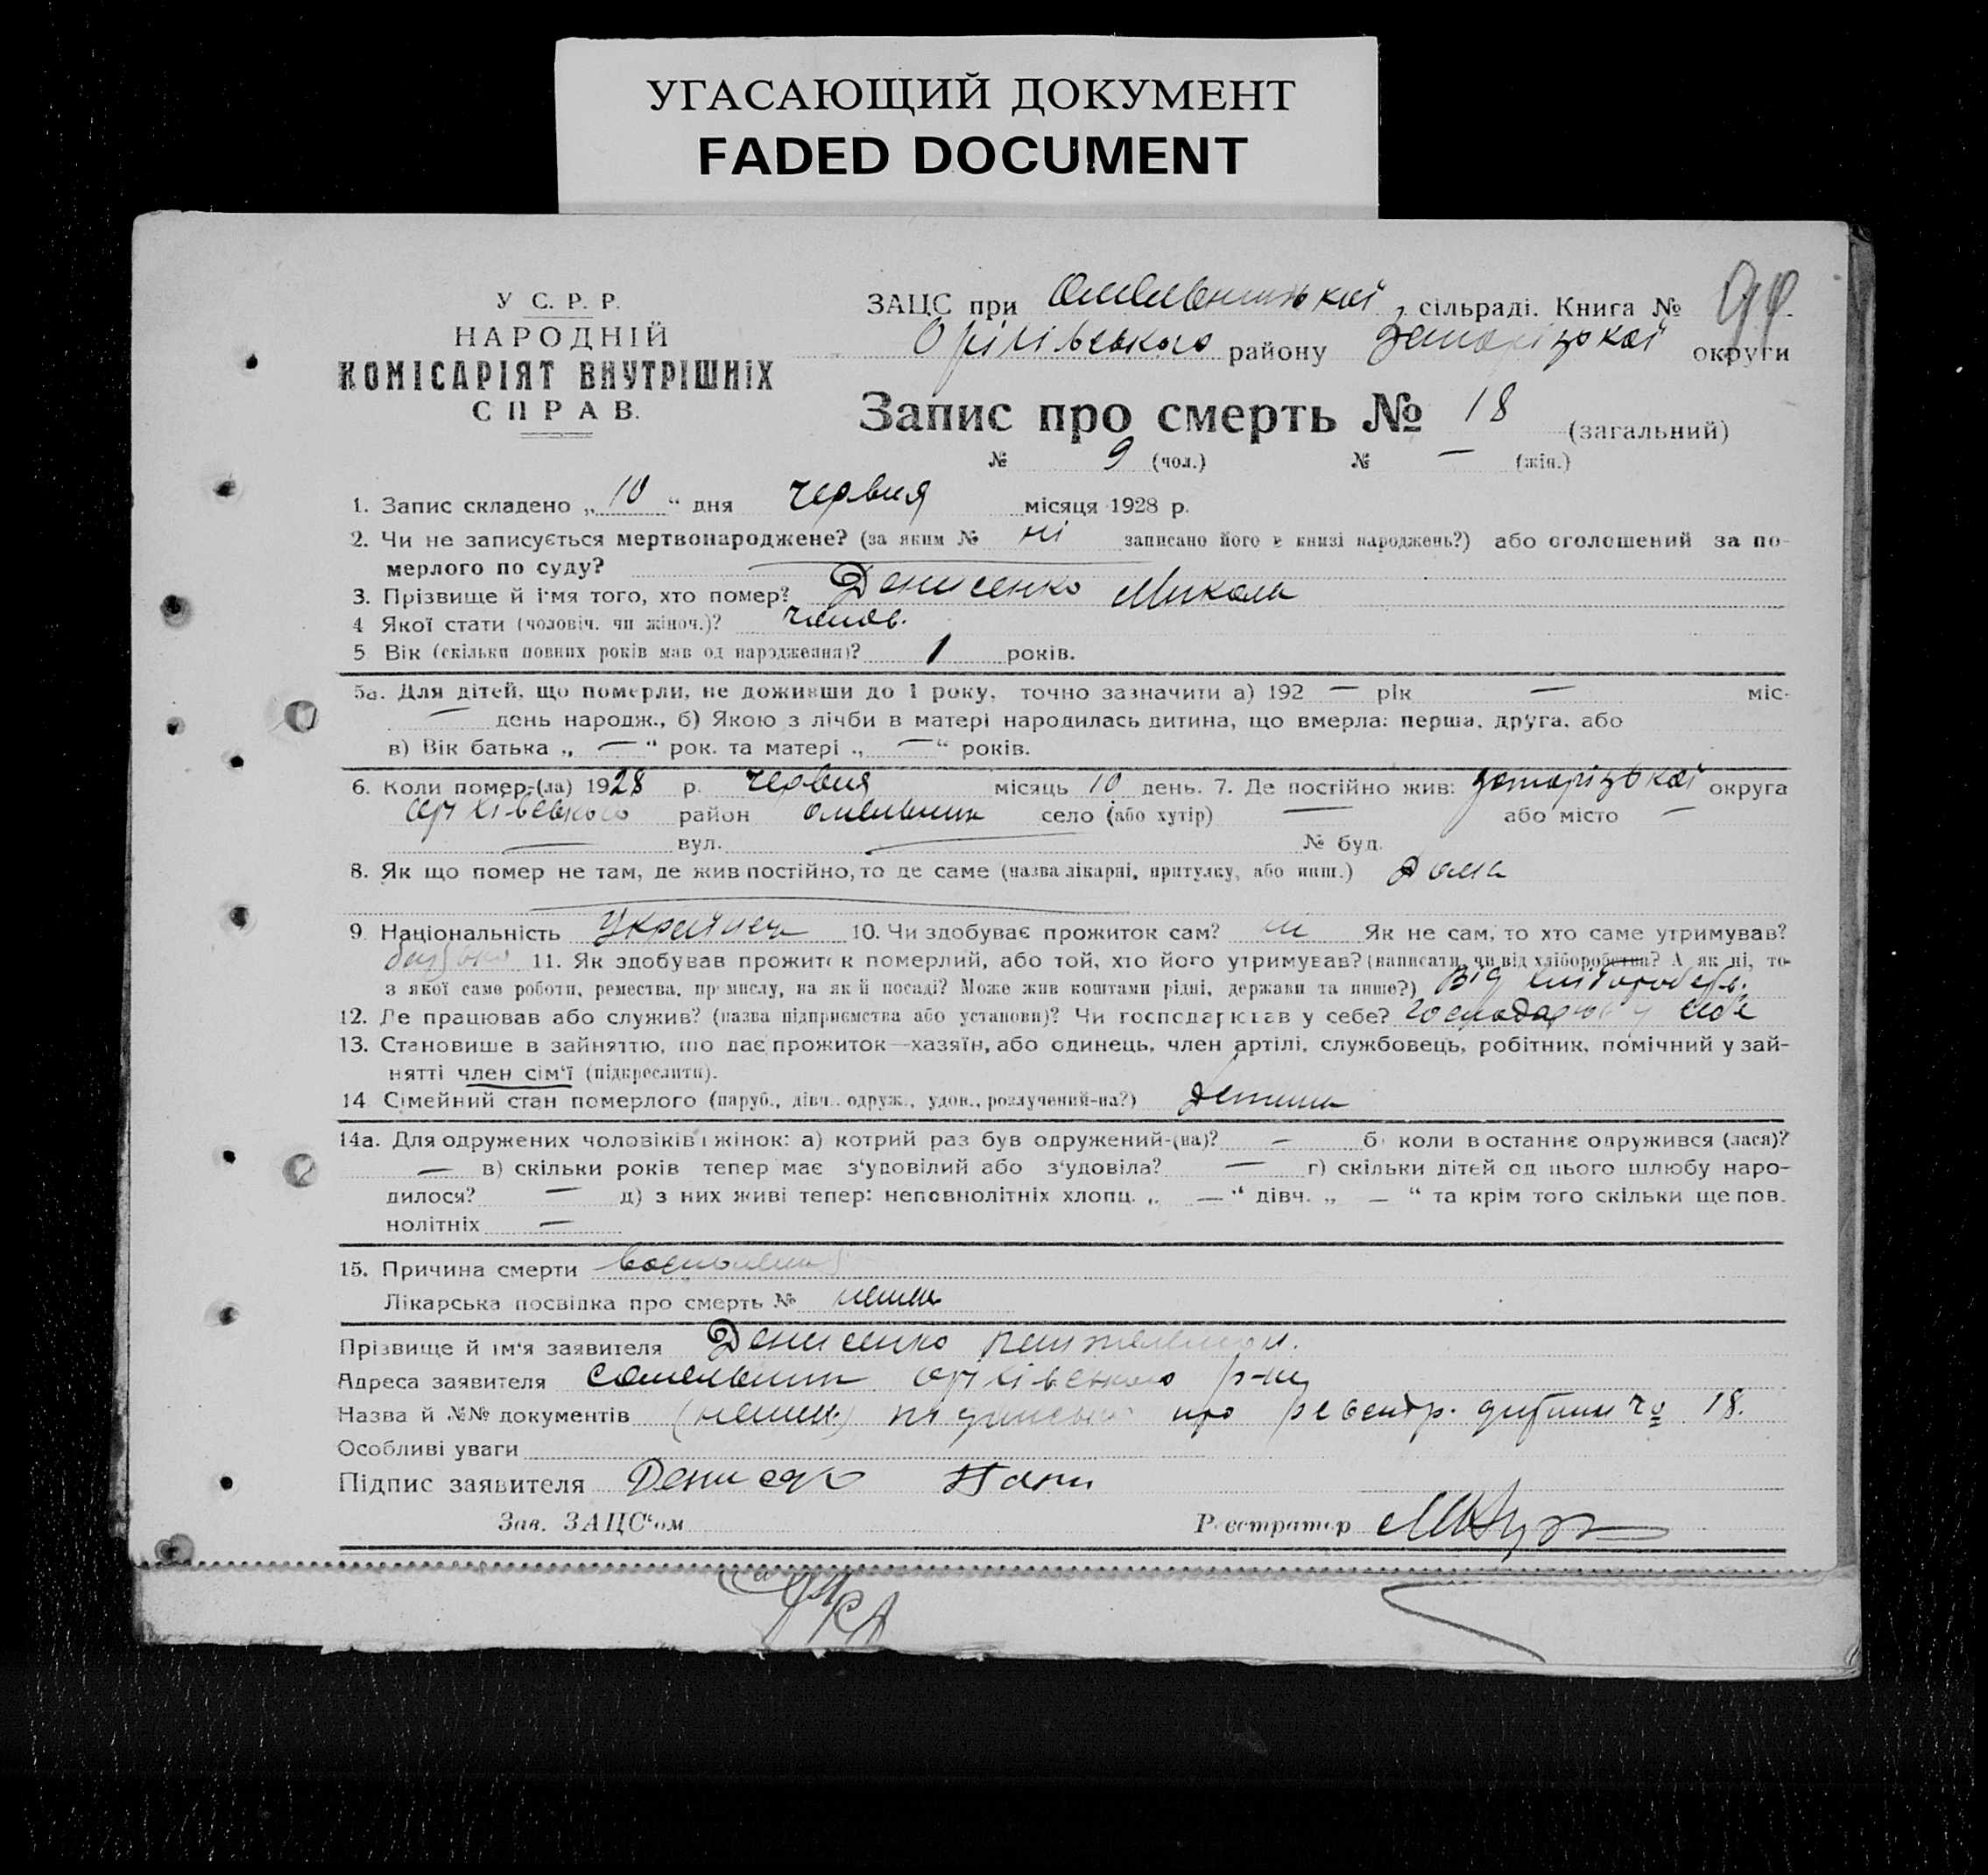 УГАСАЮЩИЙ ДОКУМЕНТ
FADED DOCUMENT
У С. Р. Р.
НАРОДНІЙ
КОМІСАРІЯТ ВНУТРІШНІХ
СПРАВ.
ЗАЦС при Омельницької сільраді. Книга №
Оріхівського району Запоріцької округи
Запис про смерть № 18 (загальний)
№ 9 (чол.) № — (жін.)
1. Запис складено „ 10 “ дня червня місяця 1928 р.
2. Чи не записується мертвонароджене? (за яким № ні записано його в книзі народжень?) або оголошений за по-
мерлого по суду?
3. Прізвище й ім'я того, хто помер? Денисенко Микола
4 Якої стати (чоловіч. чи жіноч.)? чолов.
5 Вік (скільки повних років мав од народження)? 1 років.
5а. Для дітей, що померли, не доживши до 1 року, точно зазначити а) 192 — рік — міс-
— день народж., б) Якою з лічби в матері народилась дитина, що вмерла: перша, друга, або
в) Вік батька „ — “ рок. та матері „ — “ років.
6. Коли помер-(ла) 1928 р. червня місяць 10 день. 7. Де постійно жив: Запоріцької округа
Оріхівського район Омельник село (або хутір) — або місто —
— вул. — № буд.
8. Як що помер не там, де жив постійно, то де саме (назва лікарні, притулку, або инш.) дома
9. Національність Українець 10. Чи здобуває прожиток сам? ні Як не сам, то хто саме утримував?
батько 11. Як здобував прожиток померлий, або той, хто його утримував? (написати, чи від хліборобства? А як ні, то-
з якої саме роботи, ремества, промислу, на якій посаді? Може жив коштами рідні, держави та инше?) Від хлібороб.
12. Де працював або служив? (назва підприємства або установи)? Чи господарював у себе? господарював у себе
13. Становище в зайняттю, що дає прожиток—хазяїн, або одинець, член артілі, службовець, робітник, помічний у зай-
нятті член сім'ї (підкреслити).
14 Сімейний стан померлого (паруб., дівч., одруж., удов., розлучений-на?) детина
14а. Для одружених чоловіків і жінок: а) котрий раз був одружений-(на)? — б) коли востаннє одружився (лася)?
— в) скільки років тепер має з'удовілий або з'удовіла? — г) скільки дітей од цього шлюбу наро-
дилося? — д) з них живі тепер: неповнолітніх хлопц. „ — “ дівч. „ — “ та крім того скільки ще пов.
нолітніх —
15. Причина смерти
Лікарська посвідка про смерть № немає
Прізвище й ім'я заявителя Денисенко
Адреса заявителя Омельник Оріхівського р-ну
Назва й №№ документів про № 18.
Особливі уваги
Підпис заявителя Денисенко
Зав. ЗАЦС'ом Реєстратор